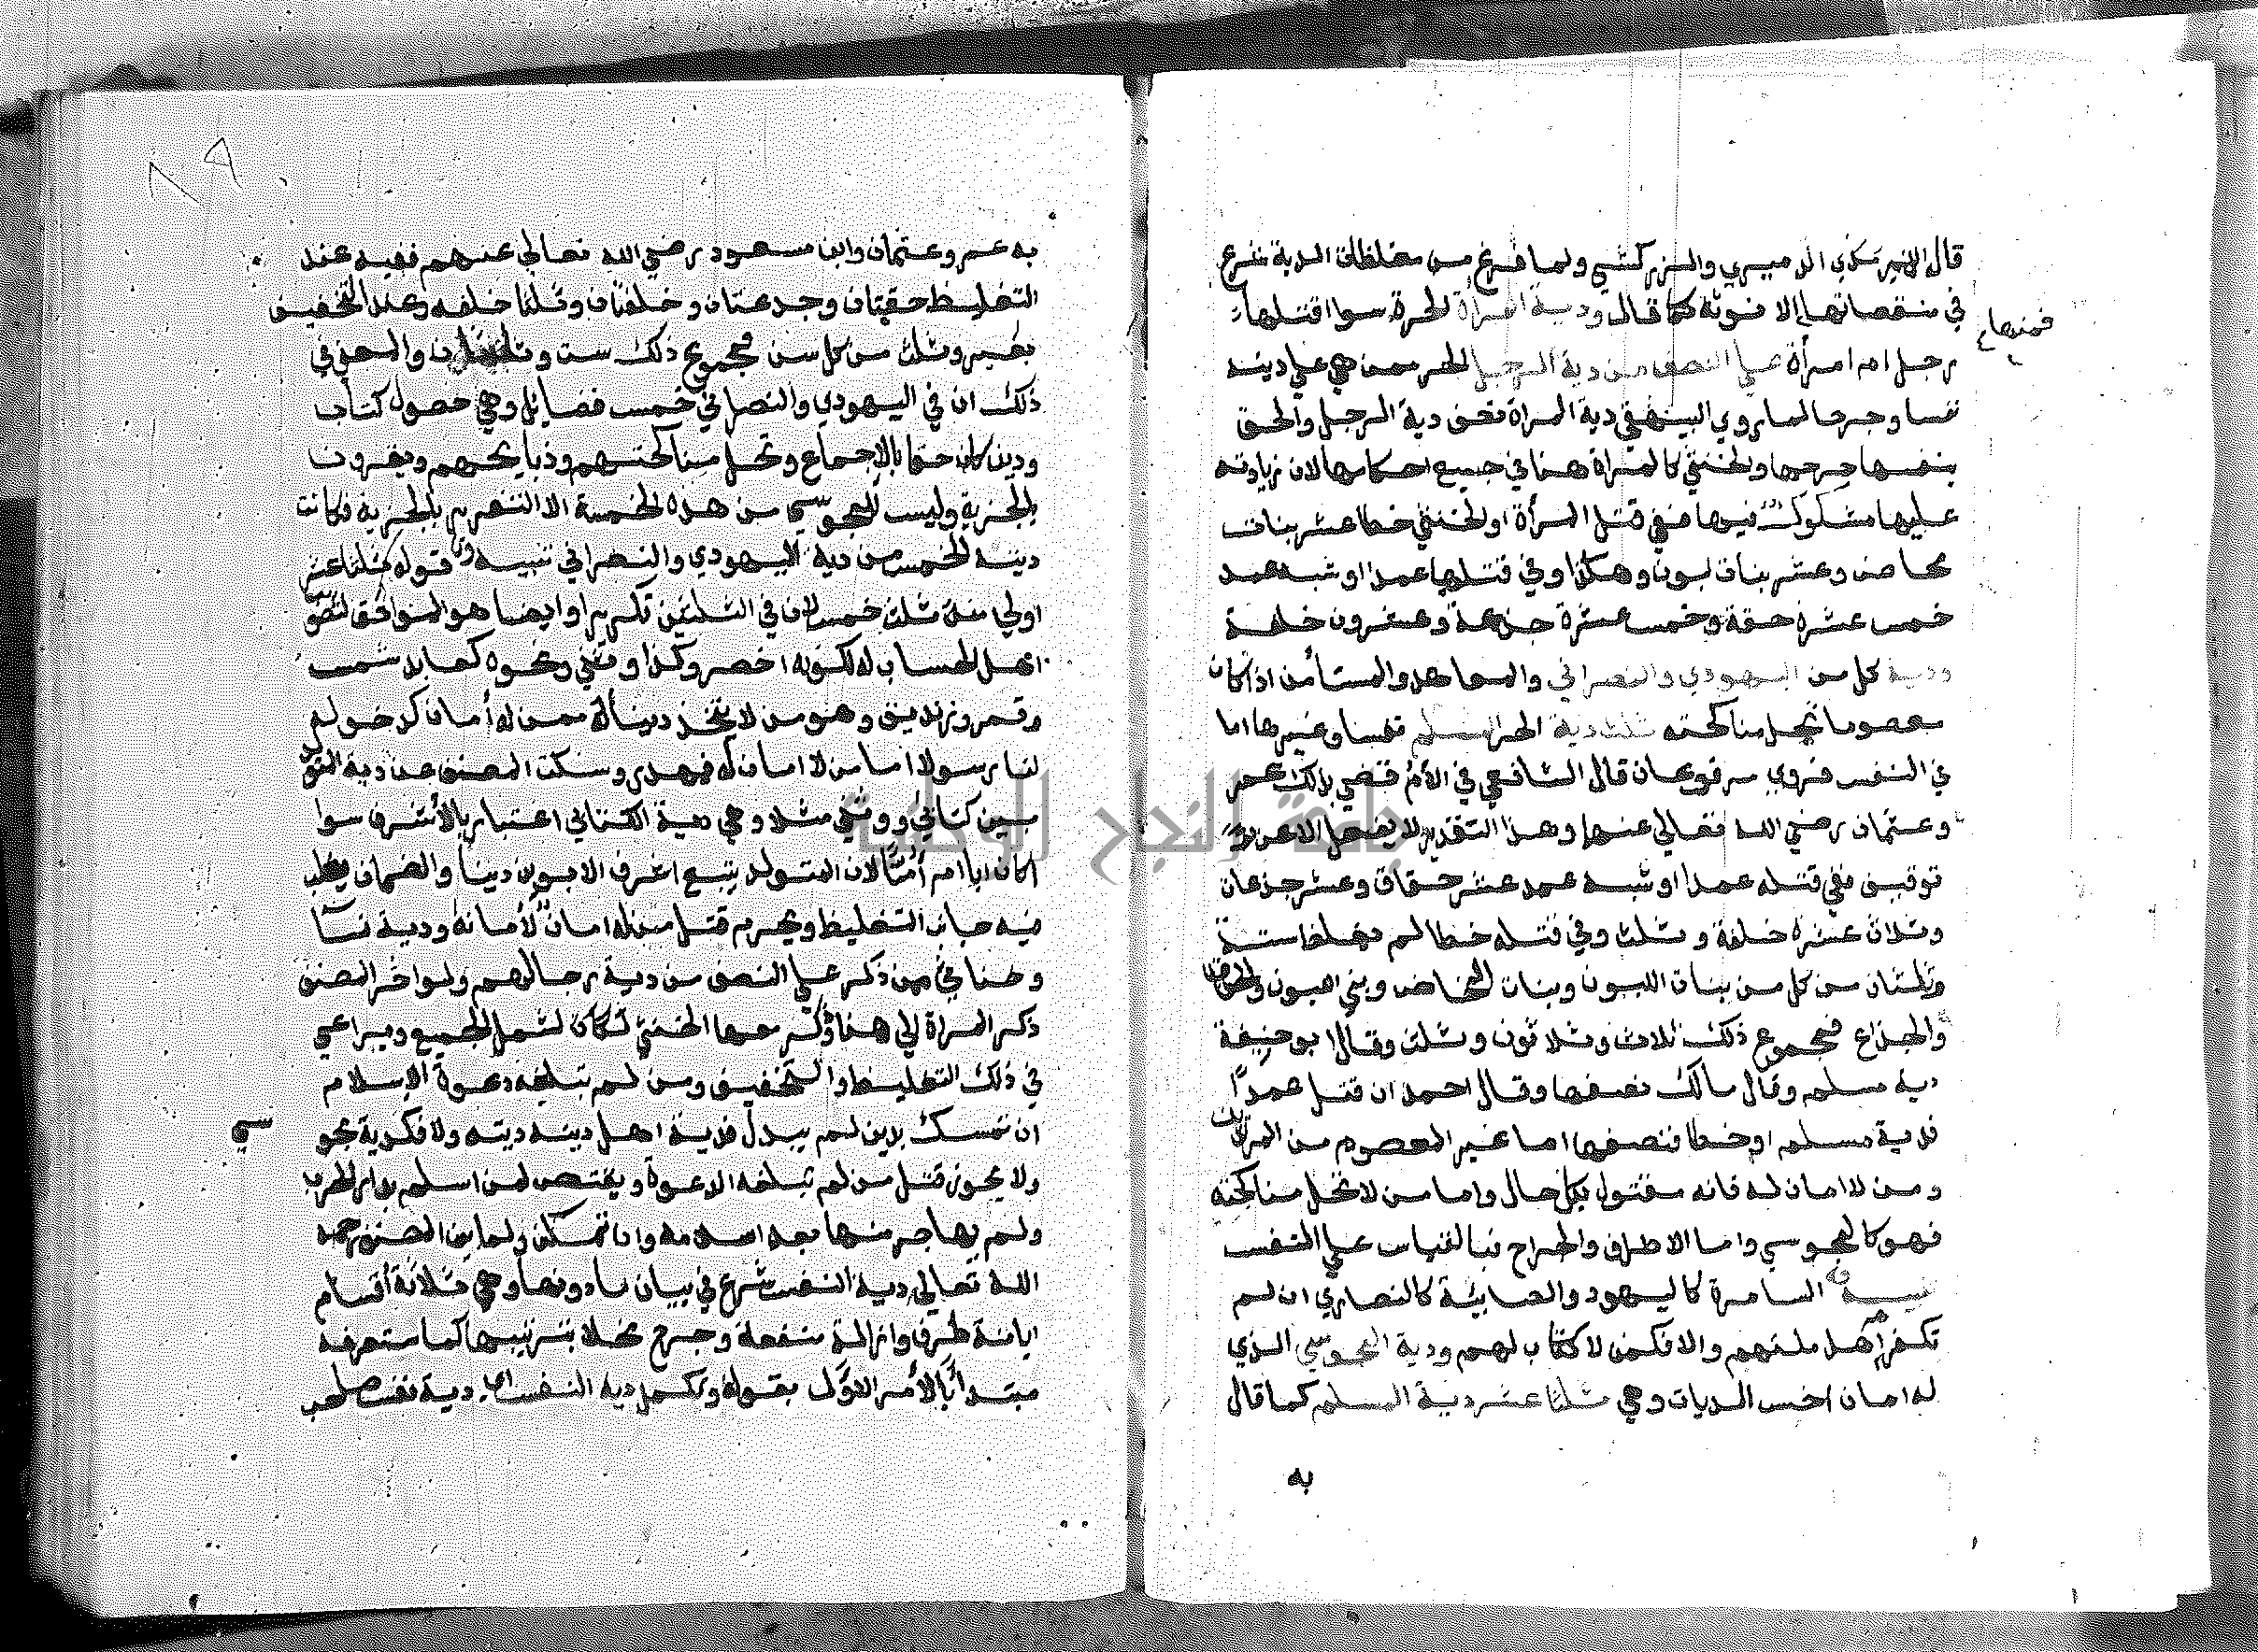 قال الدميري والزركشي ولما فرغ من مغلظات الدية شرع
في منقصاتها الانوثة كما قال ودية امرأة الحرة سوا اقتلها
فمنها
رجل ام امرأة على النصف من دية الرجل الحر ممن هي على دينه
نفسا وجرحا لما روى البيهقي دية المرأة نصف دية الرجل والحق
بنفسها جرحها والخنثى كالمرأة هنا في جميع احكامها لان زيادته
عليها مشكوك فيها ففي قتل المرأة او الخنثى خطا عشر بنات
مخاض وعشر بنات لبون وهكذا وفي قتلها عمدا او شبه عمد
خمس عشرة حقة وخمس عشرة جذعة وعشرون خلفة
ودية كل من اليهودي والنصراني والمعاهد والمستأمن اذا كان
معصوما تحل مناكحته ثلث دية الحر المسلم نفسا وغيرها اما
في النفس فروي مرفوعا قال الشافعي في الأم قضى بذلك عمر
وعثمان رضي الله تعالى عنهما وهذا التقدير لا يفعل الا عن
توقيف ففي قتله عمدا او شبه عمد عشر حقاق وعشر جذعات
وثلاث عشرة خلفة وثلث وفي قتله خطا لم يغلظ ستة
وثلثان من كل من بنات اللبون وبنات المخاض وبني اللبون والحقاق
والجذاع فمجموع ذلك ثلاث وثلاثون وثلث وقال ابو حنيفة
دية مسلم وقال مالك نصفها وقال احمد ان قتل عمدا
فدية مسلم او خطا فنصفها اما غير المعصوم من المرتدين
ومن لا امان له فانه مقتول بكل حال واما من لا تحل مناكحته
فهو كالمجوسي واما الاطراف والجراح فبالقياس على النفس
تنبيه السامرة كاليهود والصابئة كالنصارى ان لم
تكفرهم اهل ملتهم والا فكمن لا كتاب لهم ودية المجوسي الذي
له امان اخس الديات وهي ثلثا عشر دية المسلم كما قال
به
به عمر وعثمان وابن مسعود رضي الله تعالى عنهم ففيه عند
التغليظ حقتان وجذعتان وخلفتان وثلثا خلفه وعند التخفيف
بعير وثلث من كل سن فمجموع ذلك ست وثلثان والمعنى في
ذلك ان في اليهودي والنصراني خمس فضايل وهي حصول كتاب
ودين كان حقا بالاجماع وتحل مناكحتهم وذبايحهم ويقرون
بالجزية وليس للمجوسي من هذه الخمسة الا التقرير بالجزية فكانت
ديته الخمس من دية اليهودي والنصراني تنبيه قوله ثلثا عشر
اولى منه ثلث خمس لان في الثلثين تكرير او ايضا هو الموافق
اهل الحساب له لكونه اخصر وكذا وثني ونحوه كعابد شمس
وقمر وزنديق وهو من لا يتخذ دينا له ممن له أمان كدخوله
لنا رسولا اما من لا امان له فهدر وسكت المصنف عن دية المتولد
بين كتابي ووثني مثلا وهي دية الكتابي اعتبارا بالأشرف سوا
اكان ابا ام أمّا لان المتولد يتبع اشرف الابوين دينا والضمان يغلب
فيه جانب التغليظ ويحرم قتل من له امان لأمانه ودية نسا
وخناثى من ذكر على النصف من دية رجالهم ولو اخر المصنف
ذكر المرأة الى هنا وذكر معها الخنثى لكان لشمل الجميع ويراعي
في ذلك التغليظ والتخفيف ومن لم تبلغه دعوة الإسلام
ان تمسك بدين لم يبدل فدية اهل دينه ديته والا فكدية مجو
سي
ولا يجوز قتل من لم تبلغه الدعوة ويقتص لمن اسلم بدار الحرب
ولم يهاجر منها بعد اسلامه وان تمكن ولما بين المصنف رحمه
الله تعالى دية النفس شرع في بيان ما دونها وهي ثلاثة أقسام
ابانة طرف وازالة منفعة وجرح مخلا بترتيبها كما ستعرفه
مبتدأ بالأمر الاول بقوله وتكمل دية النفس اي دية نفس صاحب